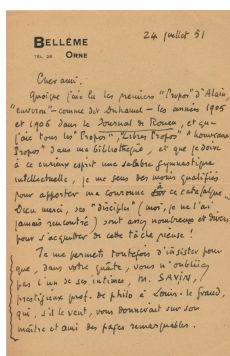 24 juillet 51
BELLÊME
TÉL. 28 ORNE
Cher ami,
Quoique j'aie lu les premiers "Propos" d'Alain,
"environ" comme dit Duhamel - les années 1905
et 1906 dans le Journal de Rouen, et que
j'aie tous les "Propos", "Libres Propos"
Propos" dans ma bibliothèque, et que je doive
à ce curieux esprit une salubre gymnastique
intellectuelle, je me sens des moins qualifiés
pour apporter ma couronne à ce catafalque.
Dieu merci, ses "disciples" (moi, je ne l'ai
jamais rencontré) sont assez nombreux et divers
pour s'acquitter de cette tâche pieuse!
Je me permets toutefois d'insister pour
que, dans votre quête, vous n'oubliiez
pas l'un de ses intimes, M. SAVIN,
prestigieux prof. de philo à Louis-le-Grand,
qui, s'il le veut, vous donnerait sur son
maître et ami des pages remarquables.